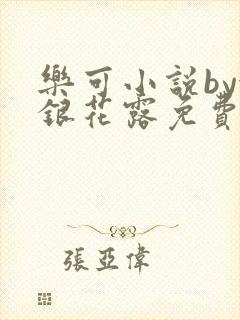 樂可小說by
銀花露免費
張亞偉